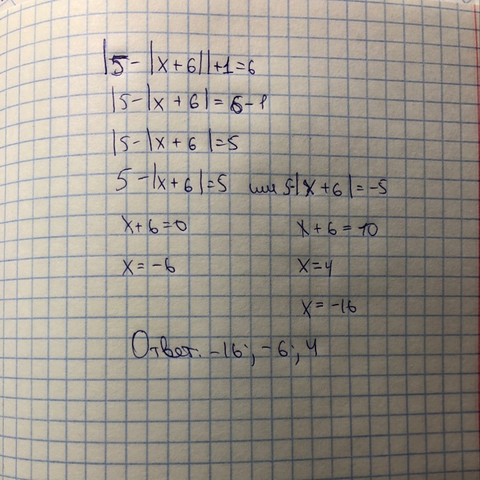 |5-|x+6||+1=6
|5-|x+6|=6-1
|5-|x+6|=5
5-|x+6|=5 или 5-|x+6|=-5
x+6=0 x+6=10
x=-6 x=4
x=-16
Ответ: -16; -6; 4